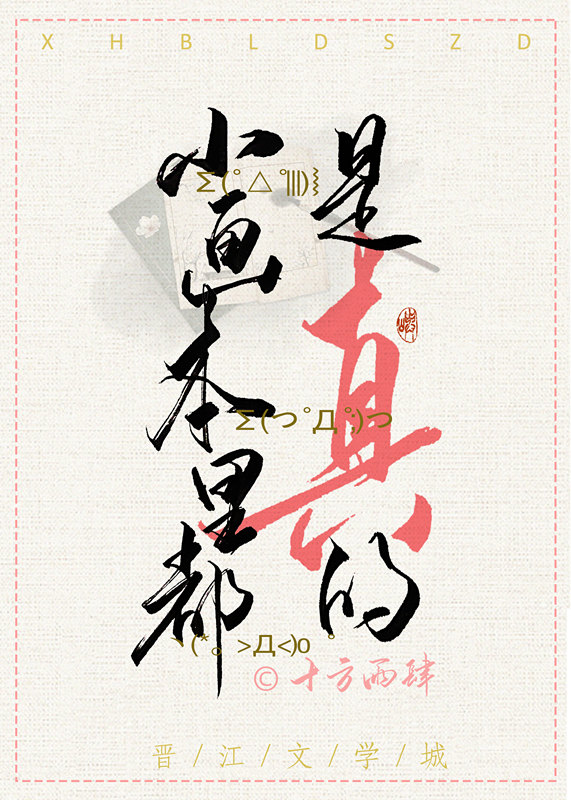 XHBLDSZD
小画本里都
是真的
Σ(°△°|||)︴
Σ(つ°Д°;)つ
(*。>Д<)o゜
© 十方雨肆
晋/江/文/学/城